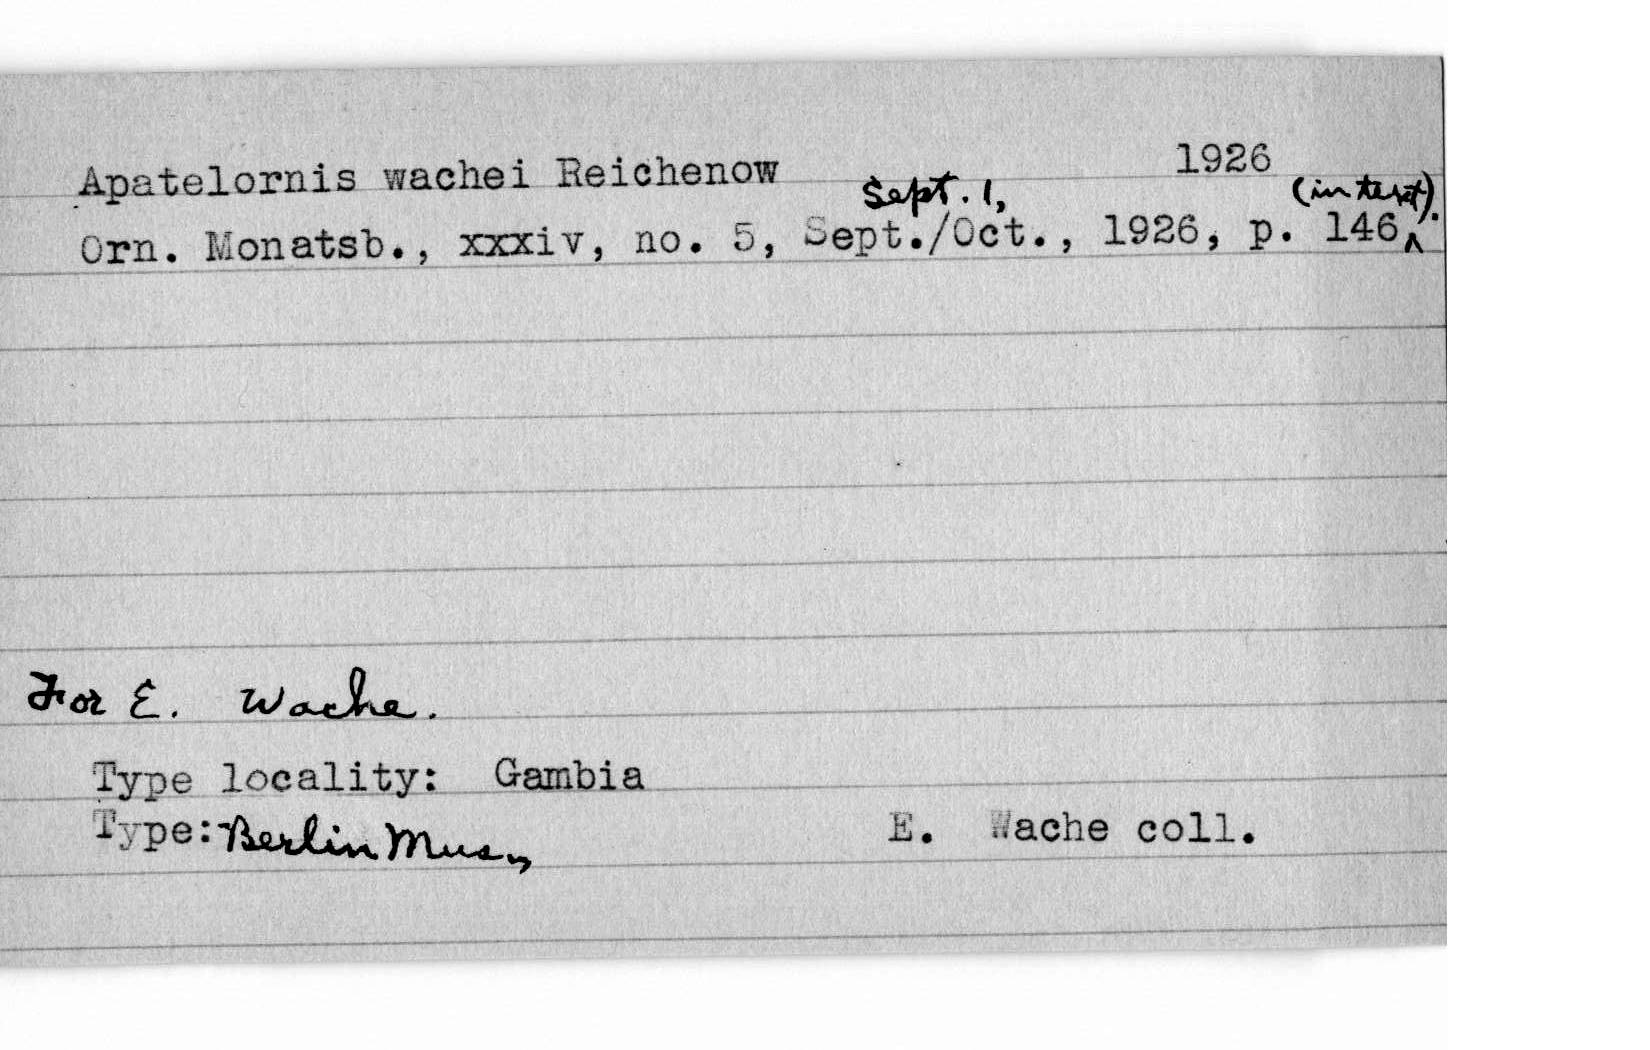 Apatelornis wachei Reichenow 1926
Sept. 1, (in text).
Orn. Monatsb., xxxiv, no. 5, Sept./Oct., 1926, p. 146‸.
For E. Wache.
Type locality: Gambia
Type: Berlin Mus., E. Wache coll.